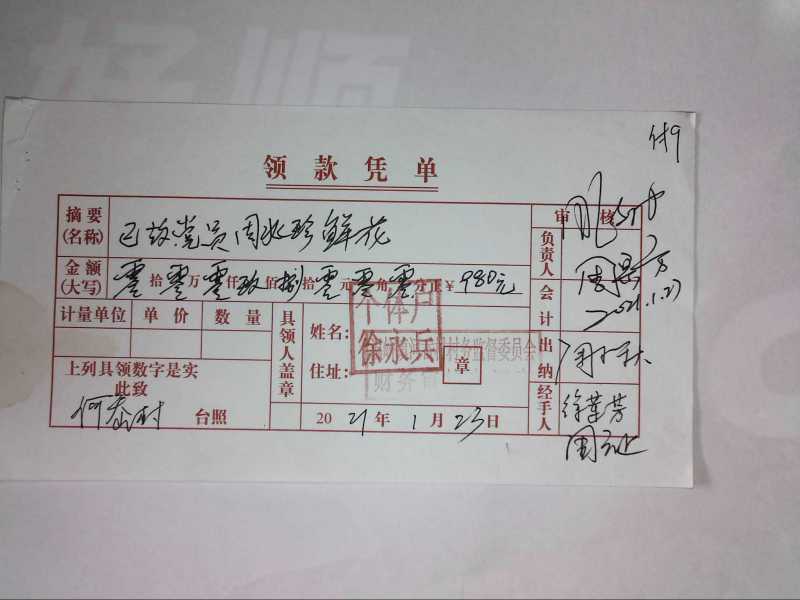 好顺
付9
领款凭单
摘要(名称) 已故党员周水珍鲜花
审核
金额(大写) 零拾零万零仟玖佰捌拾零元零角零分正¥980元
负责人
计量单位 单价 数量
具领人盖章
姓名:
住址:
个体户
徐永兵
村务监督委员会
财务
章
会计
2021.1.23
出纳
上列具领数字是实
此致
台照
2021年1月23日
经手人 徐革芳